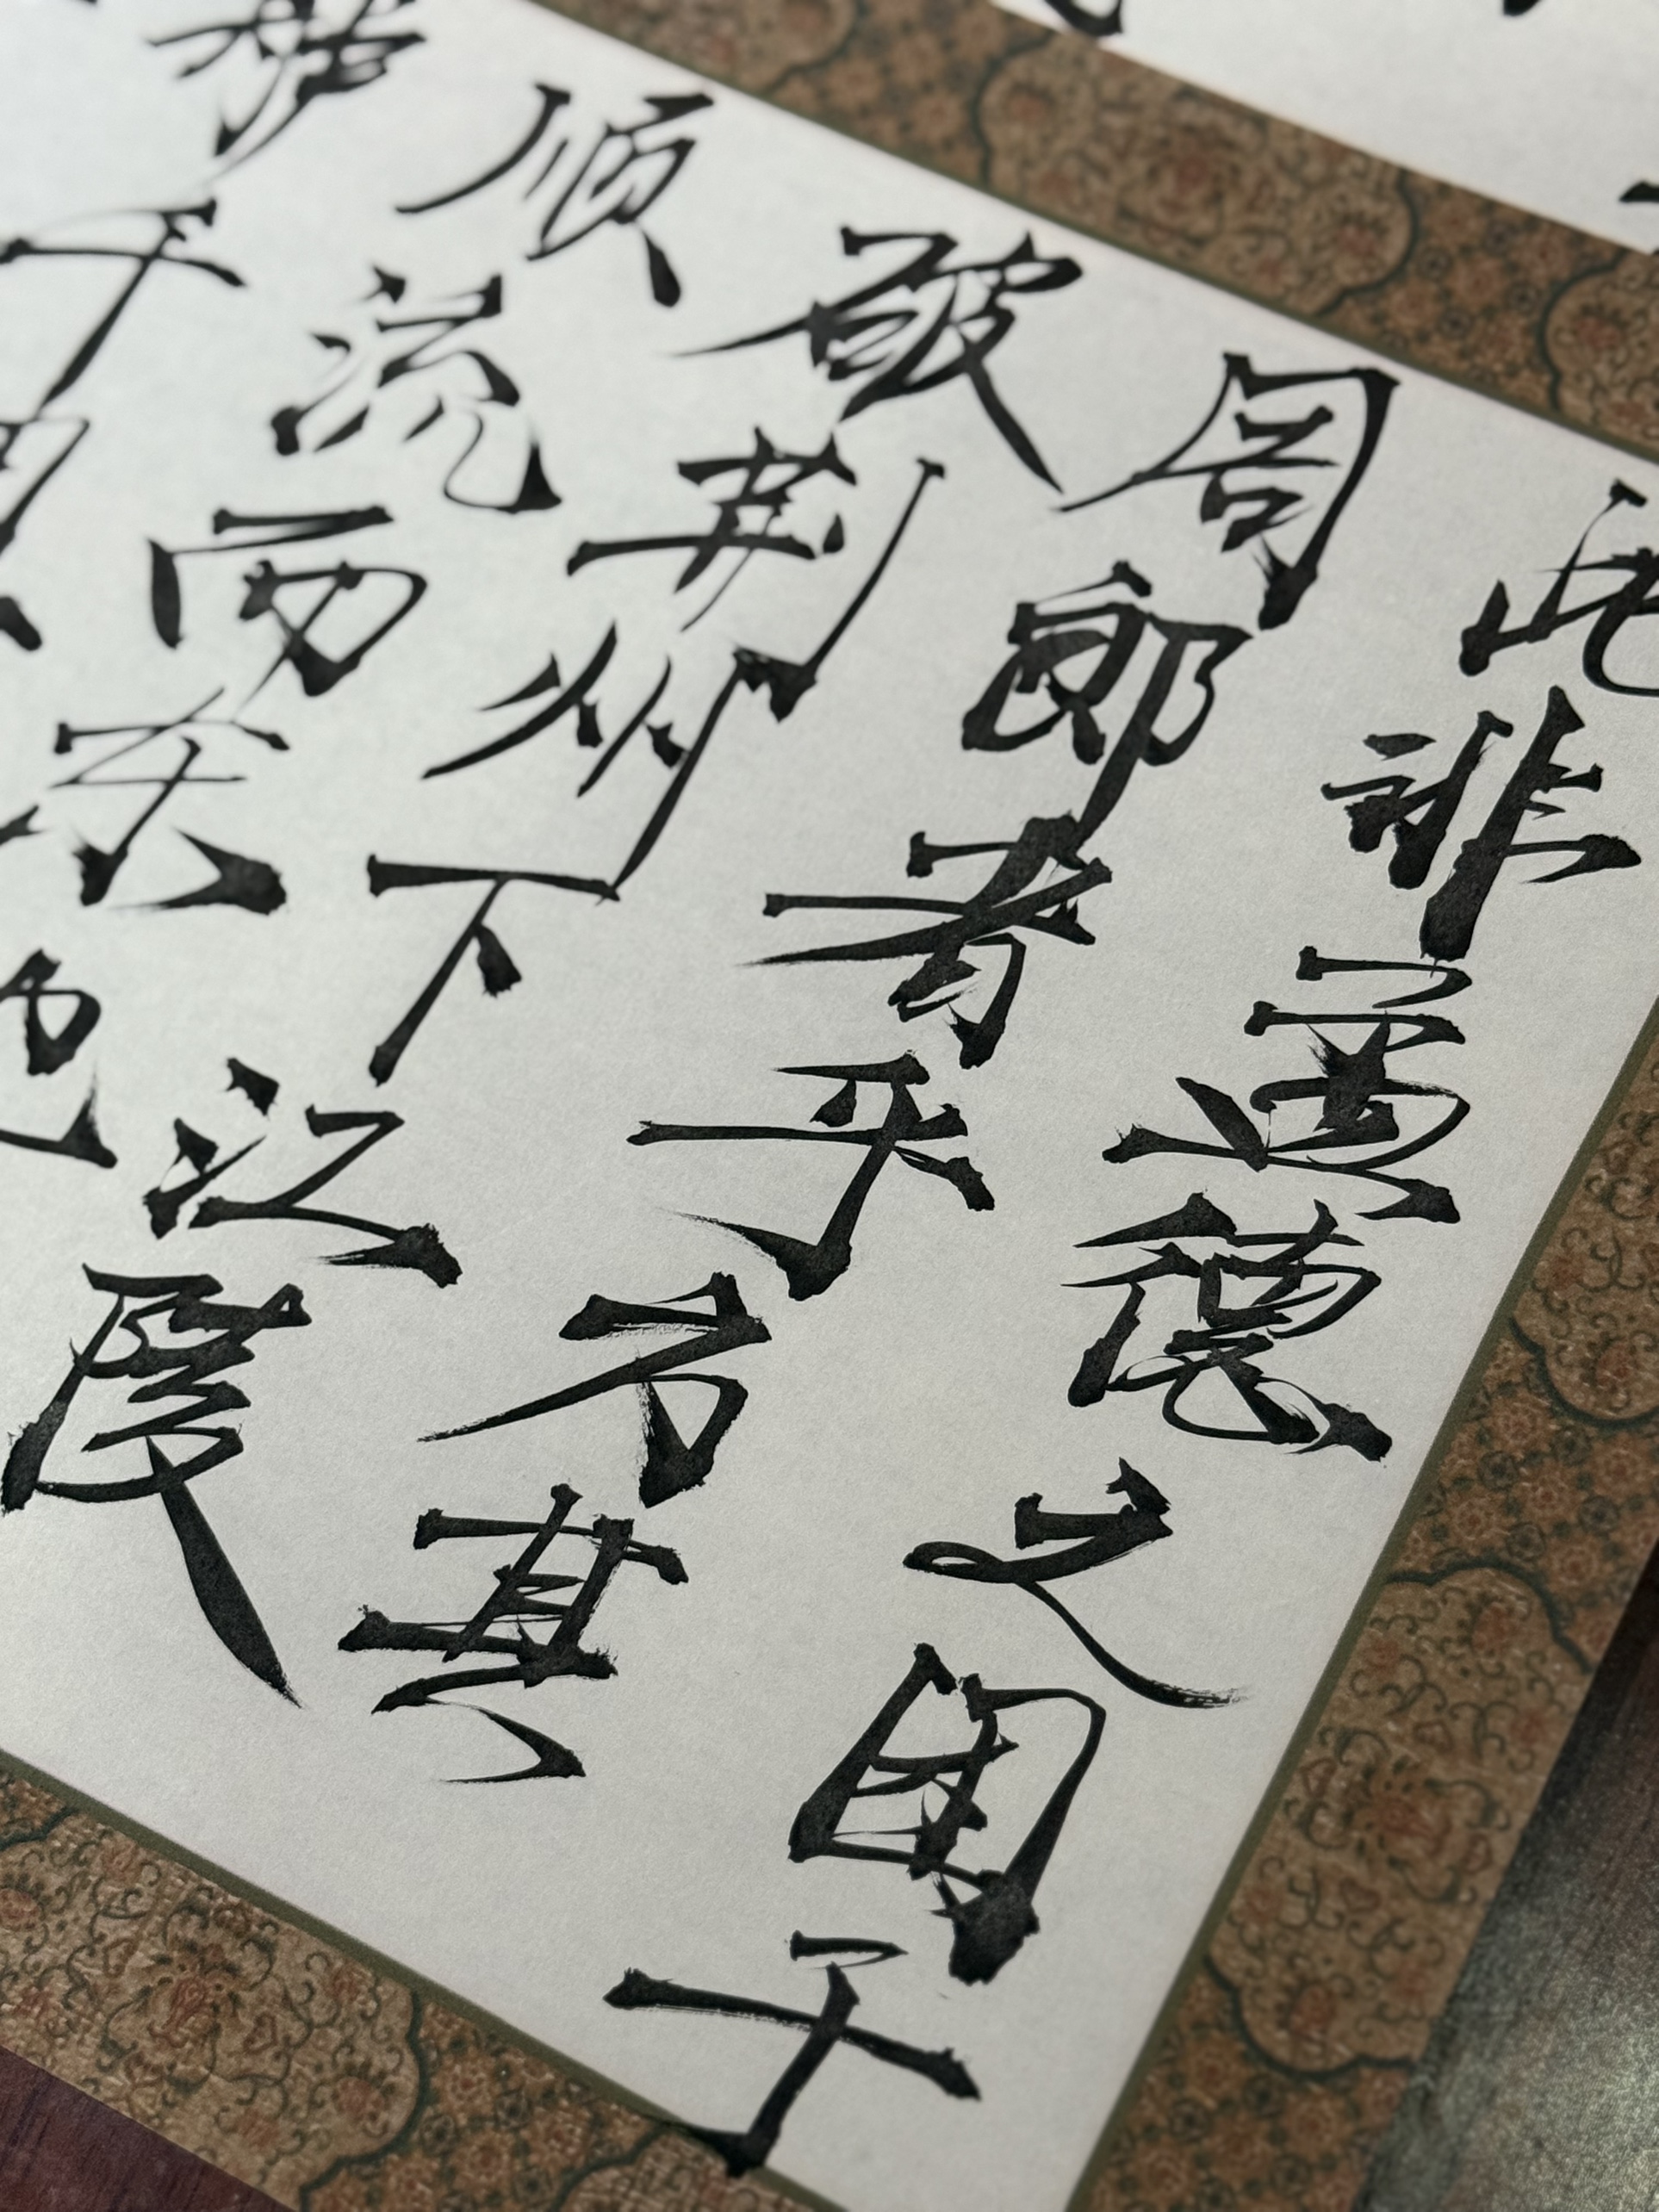 此非孟德之困于
周郎者乎方其
破荆州下江陵
顺流而东也
千